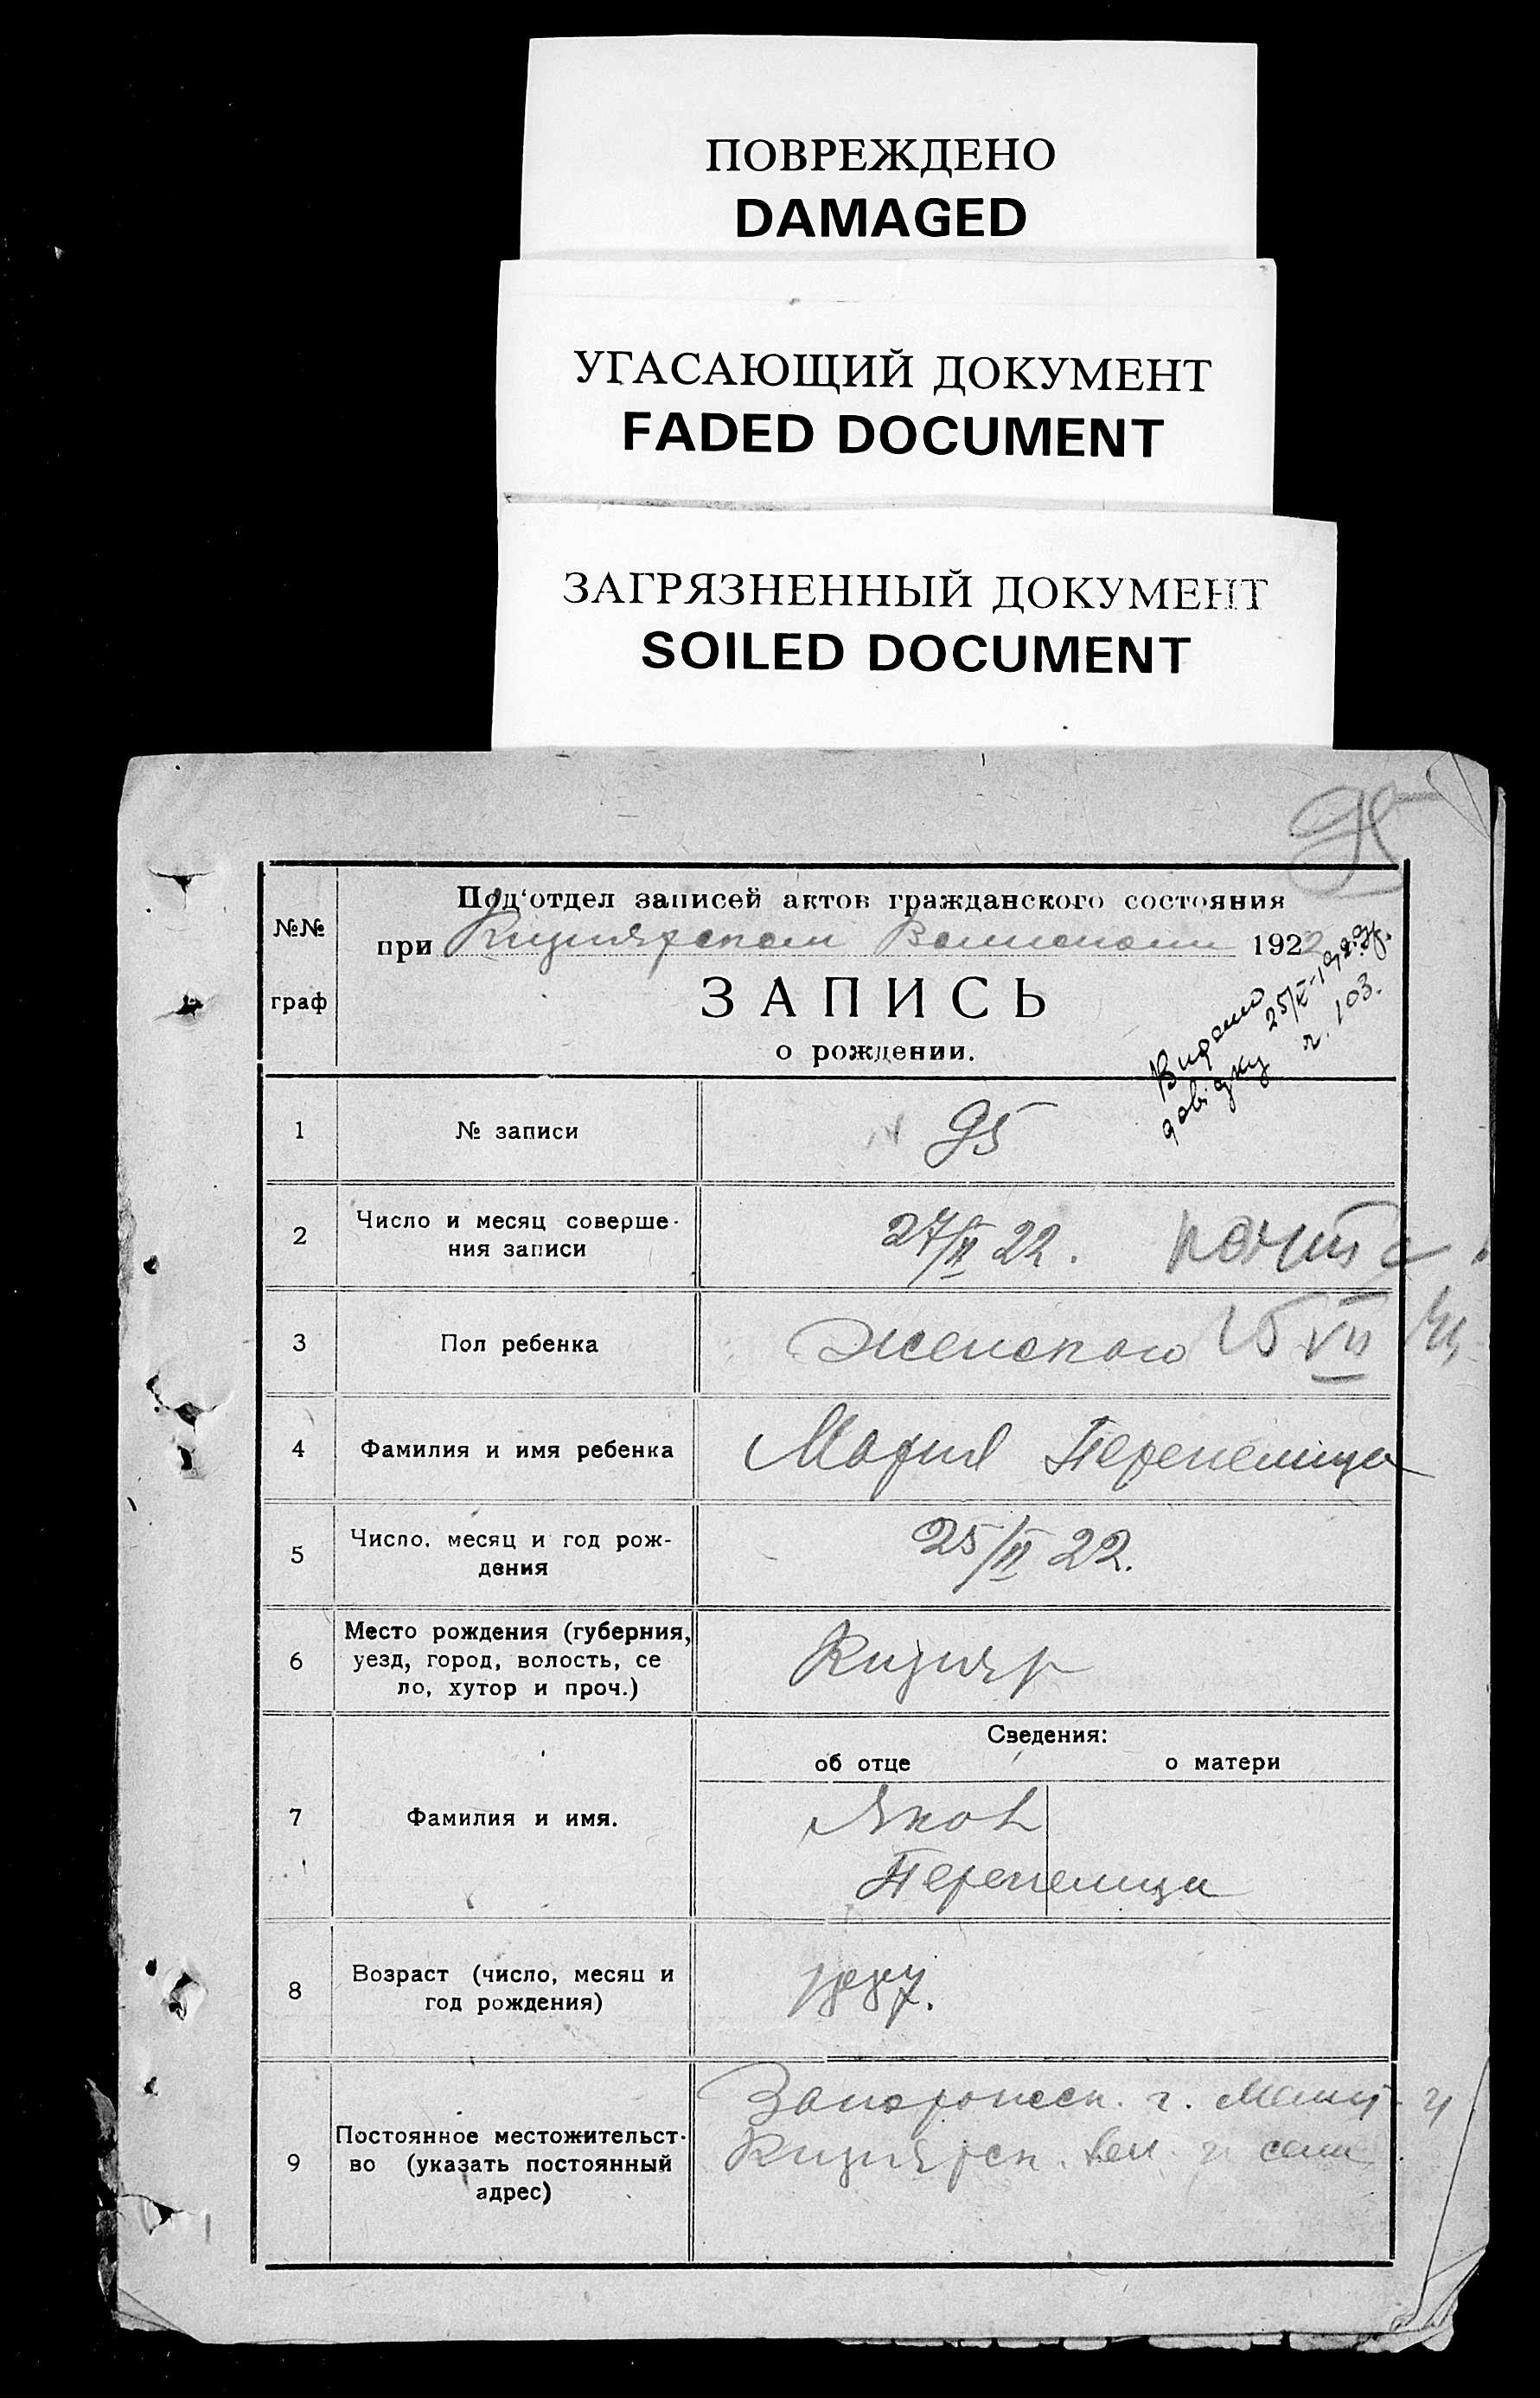 ПОВРЕЖДЕНО
DAMAGED
УГАСАЮЩИЙ ДОКУМЕНТ
FADED DOCUMENT
ЗАГРЯЗНЕННЫЙ ДОКУМЕНТ
SOILED DOCUMENT
95
№№ граф
Под'отдел записей актов гражданского состояния
при Кизиярском Волисполк 1922
ЗАПИСЬ
о рождении.
Видано
довідку 25/
г. 103.
1 № записи 95
2 Число и месяц соверше-
ния записи 27/II 22.
3 Пол ребенка Женского 15 VII
4 Фамилия и имя ребенка Мария Перепелица
5 Число, месяц и год рож-
дения 25/II 22.
6 Место рождения (губерния,
уезд, город, волость, се
ло, хутор и проч.) Кизияр
Сведения:
об отце о матери
7 Фамилия и имя. Яков
Перепелица
8 Возраст (число, месяц и
год рождения) 1887.
9 Постоянное местожительст-
во (указать постоянный
адрес) Запорожск. г. Мелит. у
Кизиярск. вол. и села